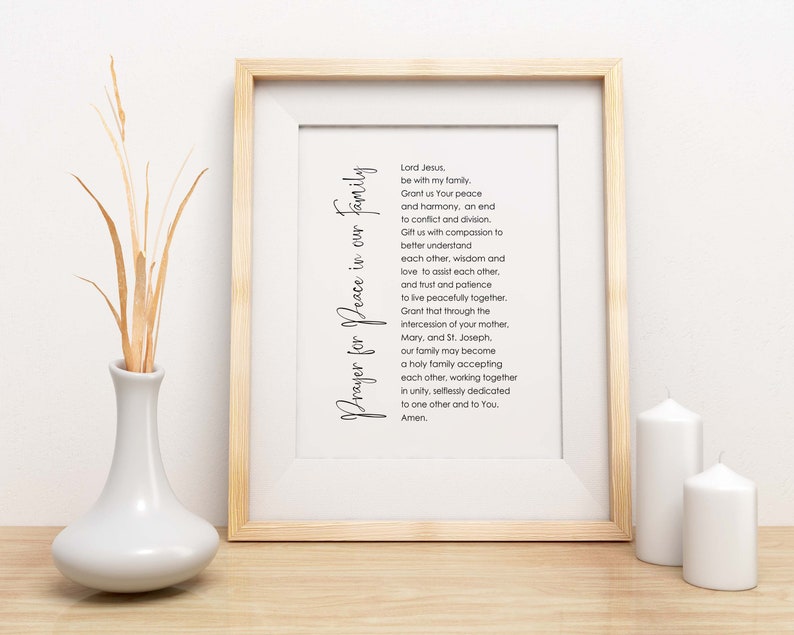 Prayer for Peace in our Family
Lord Jesus,
be with my family.
Grant us Your peace
and harmony,  an end
to conflict and division.
Gift us with compassion to
better understand
each other, wisdom and
love  to assist each other,
and trust and patience
to live peacefully together.
Grant that through the
intercession of your mother,
Mary, and St. Joseph,
our family may become
a holy family accepting
each other, working together
in unity, selflessly dedicated
to one other and to You.
Amen.